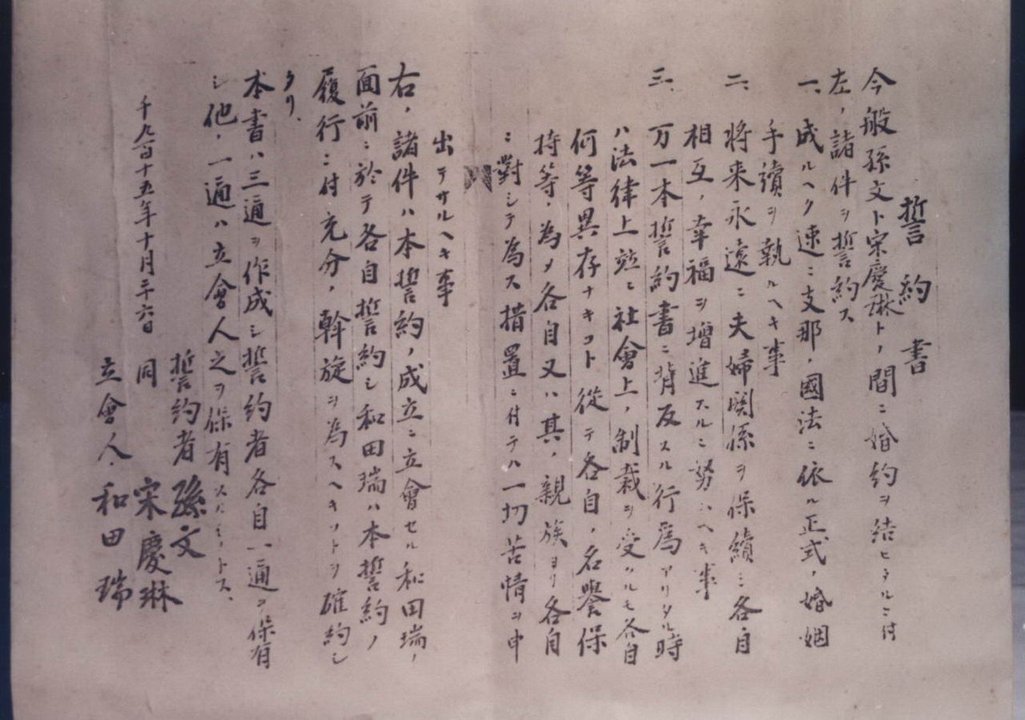 誓約書
今般孫文ト宋慶琳トノ間ニ婚約ヲ結ヒタルニ付
左ノ諸件ヲ誓約ス
一、成ルヘク速ニ支那ノ國法ニ依ル正式ノ婚姻
手續ヲ執ルヘキ事
二、將来永遠ニ夫婦関係ヲ保續シ各自
相互ノ幸福ヲ增進スルニ努ムヘキ事
三、万一本誓約書ニ背反スル行爲アリタル時
ハ法律上竝ニ社會上ノ制裁ヲ受クルモ各自
何等異存ナキコト従テ各自ノ名譽保
持等ノ為メ各自又ハ其ノ親族ヨリ各自
ニ對シテ為ス措置ニ付テハ一切苦情ヲ申
出テサルヘキ事
右ノ諸件ハ本誓約ノ成立ニ立會セル和田瑞ノ
面前ニ於テ各自誓約シ和田瑞ハ本誓約ノ
履行ニ付充分ノ斡旋ヲ為スヘキコトヲ確約シ
タリ、
本書ハ三通ヲ作成シ誓約者各自一通ヲ保有
シ他ノ一通ハ立會人之ヲ保有スルモノトス、
千九百十五年十月二十六日
誓約者 孫文
同 宋慶琳
立會人 和田瑞